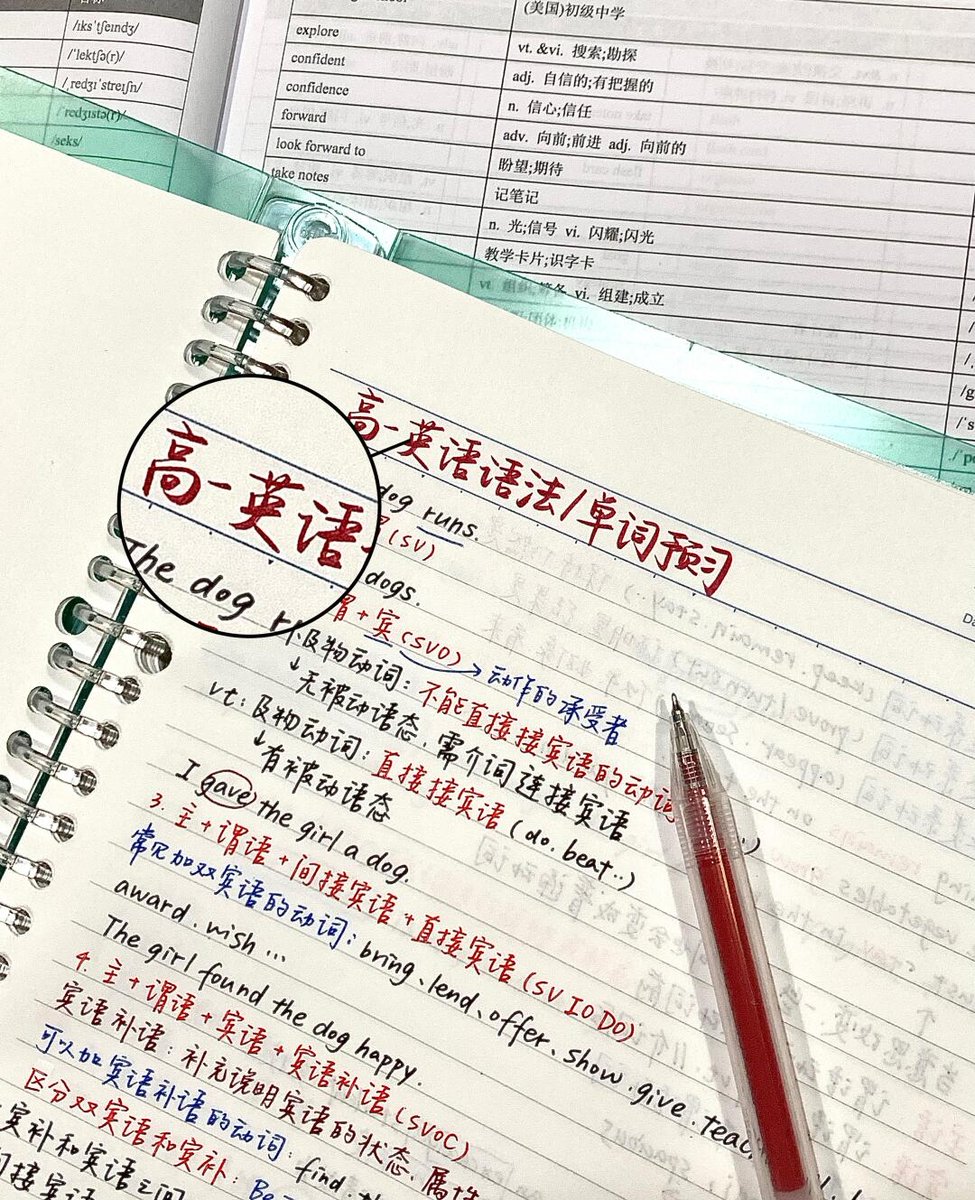 /ɪks'tʃeɪndʒ/
/'lektʃə(r)/
/ˌredʒɪ'streɪʃn/
/'redʒɪstə(r)/
/seks/
(美国)初级中学
explore
vt. &vi. 搜索;勘探
confident
adj. 自信的;有把握的
confidence
n. 信心;信任
forward
adv. 向前;前进 adj. 向前的
look forward to
盼望;期待
take notes
记笔记
n. 光;信号 vi. 闪耀;闪光
教学卡片;识字卡
vi. 组建;成立
高一英语语法/单词预习
高一英语
The dog r
dog runs.
(SV)
dogs.
谓+宾(SVO)→动作的承受者
不及物动词:不能直接接宾语的动词
↓无被动语态,需介词连接宾语
vt:及物动词:直接接宾语(do.beat..)
↓有被动语态
I gave the girl a dog.
3.主+谓语+间接宾语+直接宾语(SV IO DO)
常见加双宾语的动词:bring、lend、offer、show.give.teac
award.wish...
The girl found the dog happy.
4.主+谓语+宾语+宾语补语(SVOC)
宾语补语:补充说明宾语的状态、属性
可以加宾语补语的动词:find.
区分双宾语和宾补:Be
宾补和宾语之间
间接宾语